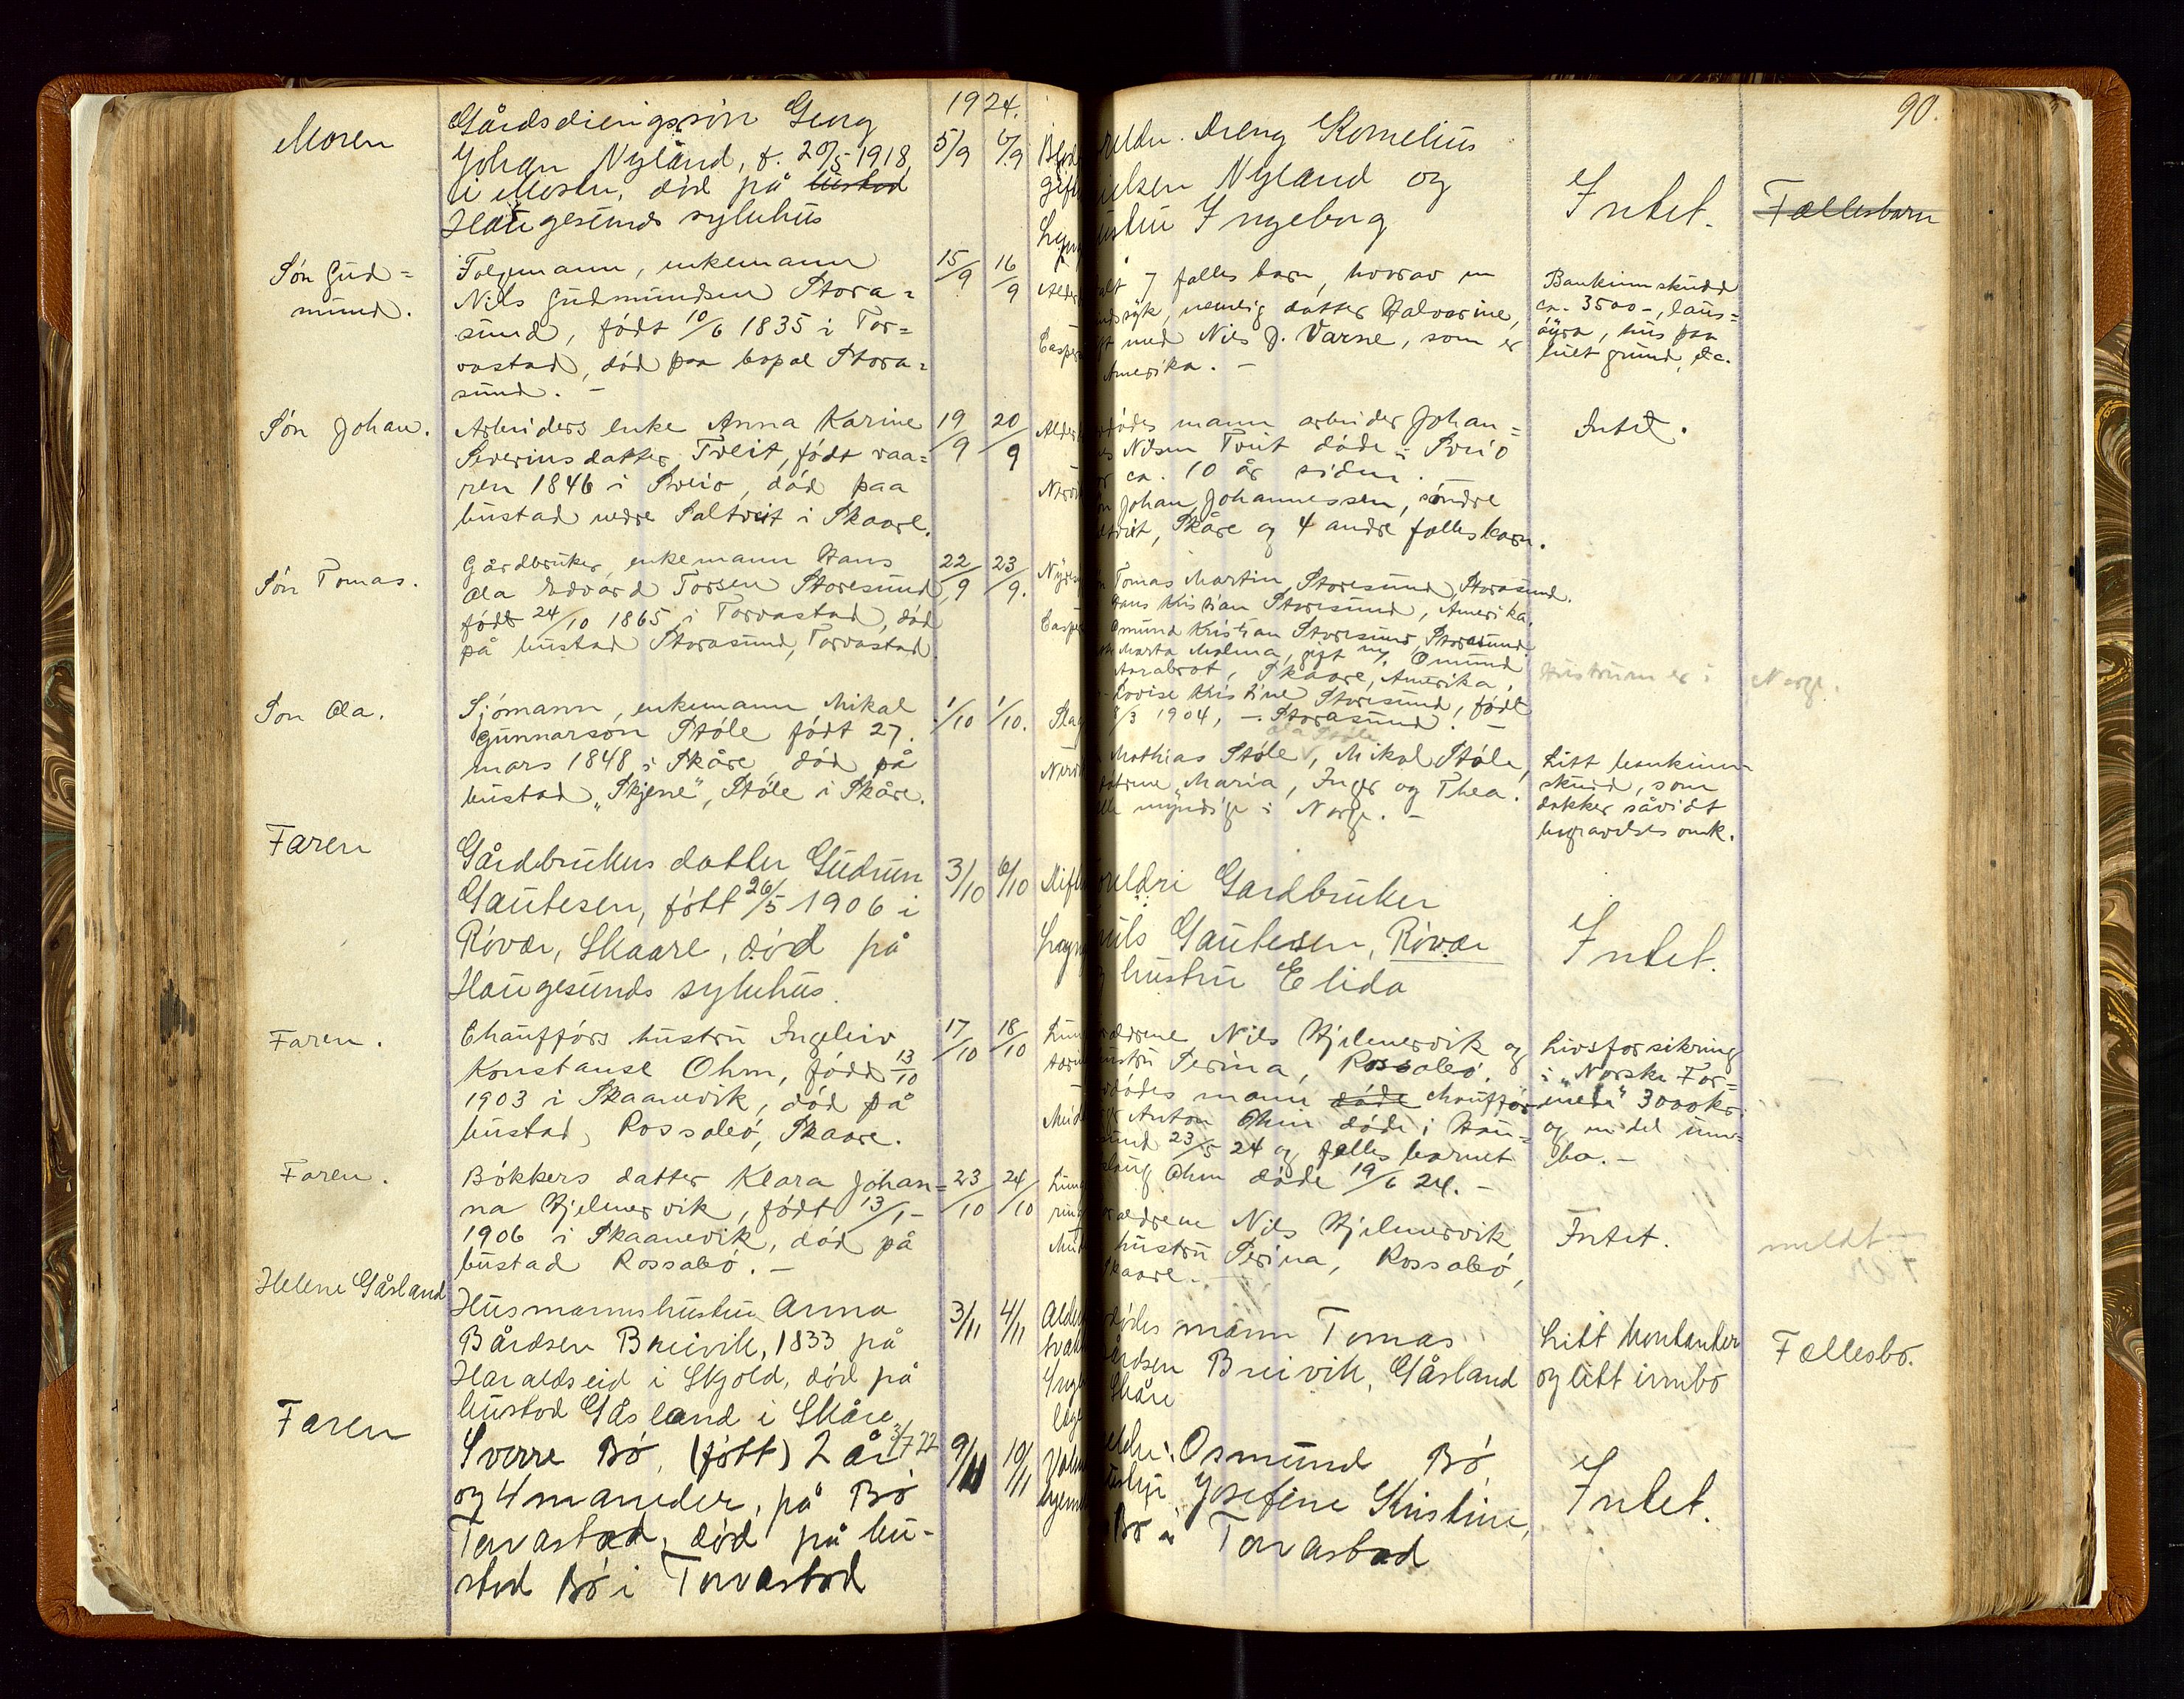 1924.
90.
Moren
Gårdsdrengsøn Georg
Johan Nyland, f. 20/5 1918
i Moster, død på bustad
Haugesunds sykehus
5/9
6/9
Intet.
Fællesbarn
reldre. Dreng Kornelius
ielsen Nyland og
ustru Ingeborg
Søn Gud=
mund.
Folgemann, enkemann
Nils Gudmundsen Stora=
sund, født 10/6 1835 i Tor=
vastad, død paa bopæl Stora=
sund. -
15/9
16/9
Alder
Casper
alt 7 falles barn, hvorav en
nemlig datter Halvorine,
med Nils J. Varne, som er
Amerika. -
Bankinnskudd
ca. 3500-, laus=
øyra, hus paa
leiet grund, etc.
Søn Johan.
Arbeiders enke Anna Karine
Severinsdatter Tveit, født vaa=
ren 1846 i Sveio, død paa
bustad nedre Saltveit i Skaare.
19/9
20/9
Alder
dødes mann arbeider Johan=
es Nilsen Tveit døde i Sveio
ca. 10 år siden. -
Johan Johannessen, søndre
Skåre og 4 andre falles barn.
Intet.
Søn Tomas.
Gårdbruker, enkemann Hans
Ola Edvard Torsen Storesund,
født 24/10 1865 i Torvastad, død
på bustad Storasund, Torvastad
22/9
23/9.
Casper
Tomas Martin Storesund, Storasund.
Hans Kristian Storesund, Amerika.
Omund Kristian Storesund, Storasund.
Marta Malina, gift m/. Omund
Aarabrot, Skaare, Amerika,
Lovise Kristine Storesund, født
8/3 1904, - Storasund. -
Hustruen er i Norge.
Søn Ola.
Sjømann, enkemann Mikal
Gunnarson Støle født 27.
mars 1848 i Skåre, død på
bustad „Skjene", Støle i Skåre.
1/10
1/10.
Ola Støle
Mathias Støle, Mikal Støle,
Maria, Inger og Thea.
lle myndige i Norge. -
Litt bankinn=
skudd, som
dekker såvidt
begravelses omk.
Faren
Gårdbrukers datter Gudrun
Gautesen, født 26/5 1906 i
Røvær, Skaare, død på
Haugesunds sykehus.
3/10
6/10
oreldri Gardbruker
Nils Gautesen, Røvær
hustru Elida
Intet.
Faren.
Chaufførs hustru Ingeleiv
Konstanse Ohm, født 13/10
1903 i Skaanevik, død på
bustad, Rossabø, Skaare.
17/10
18/10
ældrene Nils Hjelmervik og
hustru Serina, Rossabø.
dødes mann døde chauffør
Anton Ohm døde i Hau=
sund 23/5 24 og felles barnet
Ohm døde 19/6 24. -
Livsforsikring
i „Norske For=
enede" 3000 kr.
og en del inn=
bo. -
Faren.
Bøkkers datter Klara Johan=
na Hjelmervik, født 13/1-
1906 i Skaanevik, død på
bustad Rossabø. -
23/10
24/10
ældrene Nils Hjelmervik
hustru Serina, Rossabø,
Skaare. -
Intet.
meldt
Helene Gåsland
Husmannshustru Anna
Bårdsen Breivik, 1833 på
Haraldseid i Skjold, død på
bustad Gåsland i Skåre
3/11
4/11
dødes mann Tomas
årdsen Breivik, Gåsland
Skåre
Litt kontanter
og litt innbo
Fællesbo.
Faren
Sverre Bø, (født) 2 år 3/7 22
og 4 maneder, på Bø
Torvastad, død på bu-
stad Bø i Torvastad
9/11
10/11
eldre: Osmund Bø
ustru Josefine Kristine,
Bø i Torvastad
Intet.